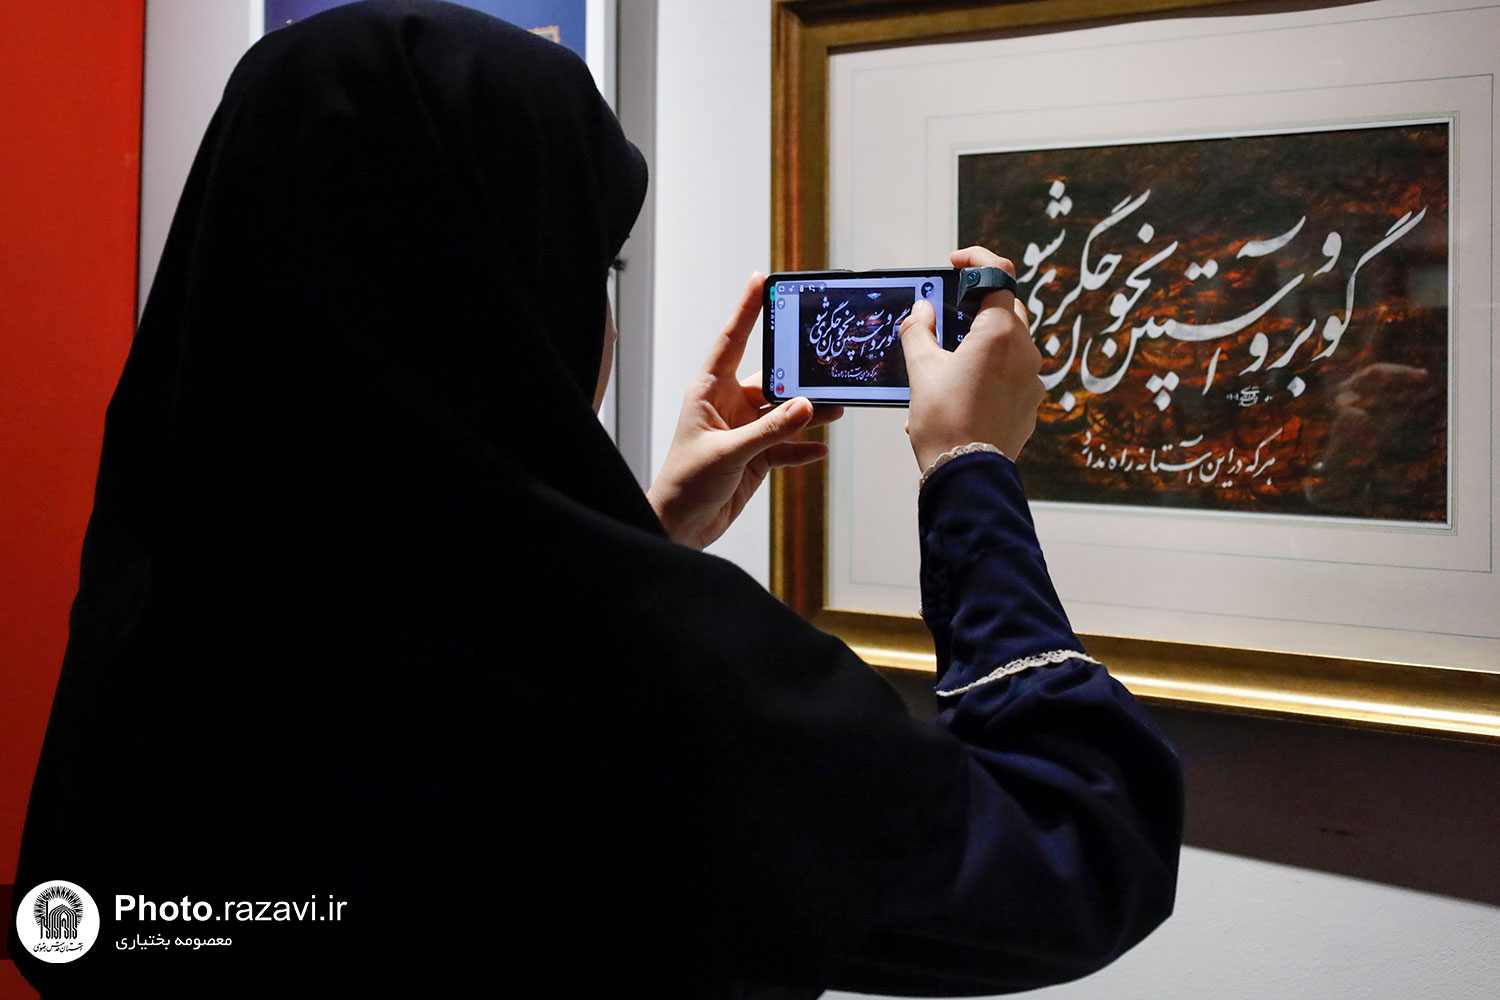 گو برو و آستین بخون جگر شوی
هر که در این آستانه راه ندارد
گو برو و آستین بخون جگر شوی
هر که در این آستانه راه ندارد
Photo.razavi.ir
معصومه بختیاری
آستان قدس رضوی